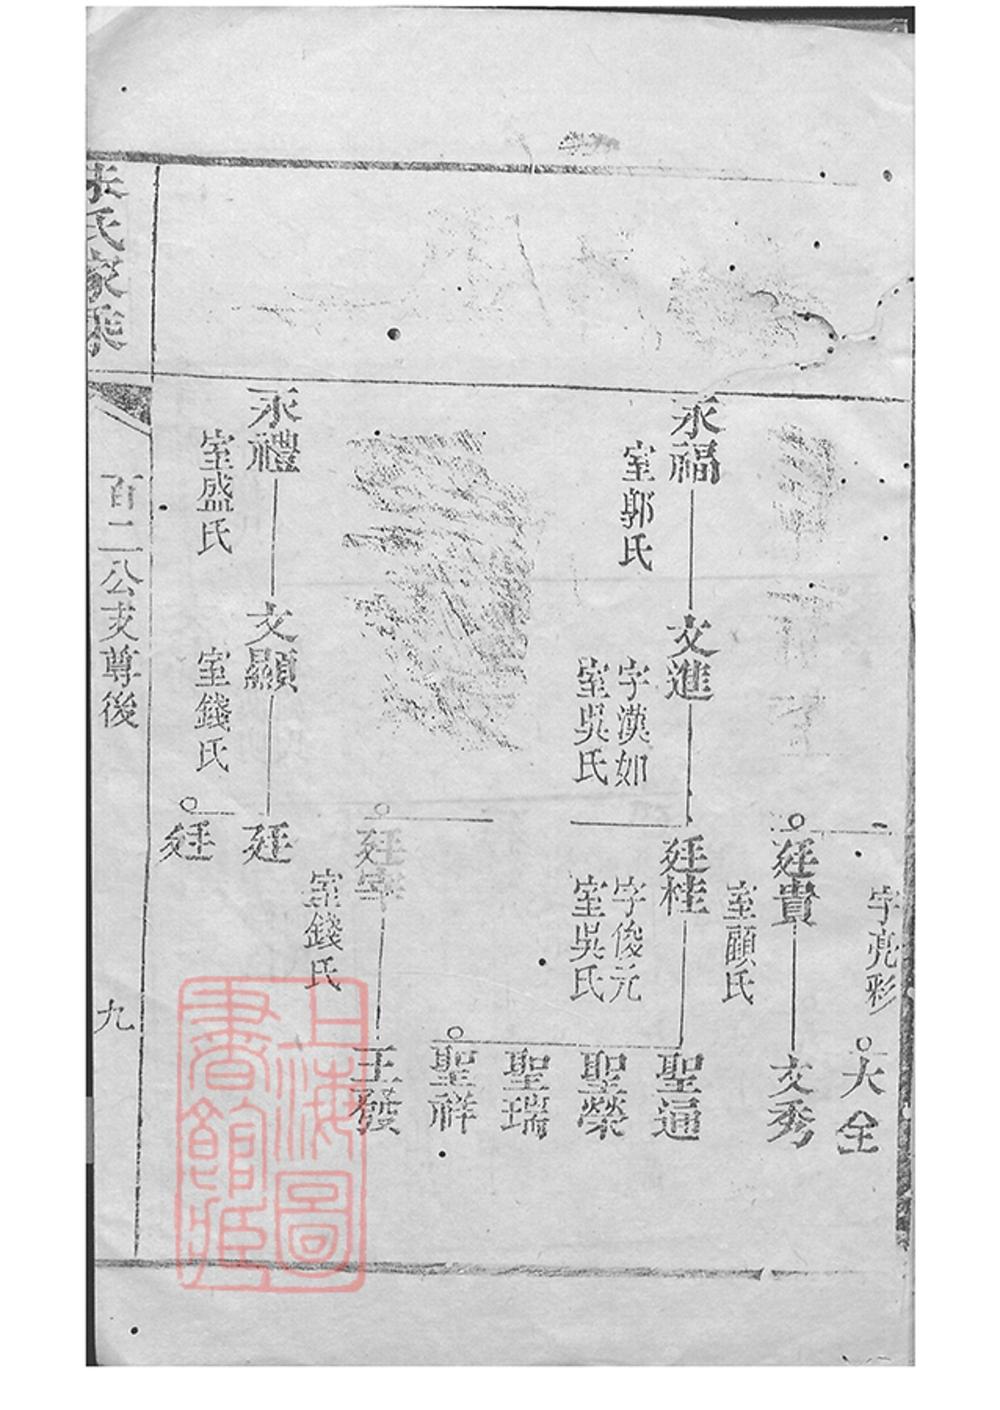 字亮彩
大全
廷貴
室顧氏
文秀
永福
室郭氏
文進
字漢如
室吳氏
廷桂
字俊元
室吳氏
聖逼
聖榮
聖瑞
聖祥
廷宰
室錢氏
王發
永禮
室盛氏
文顯
室錢氏
廷
廷
氏家乘
百二公支尊後
九
上海圖書館藏